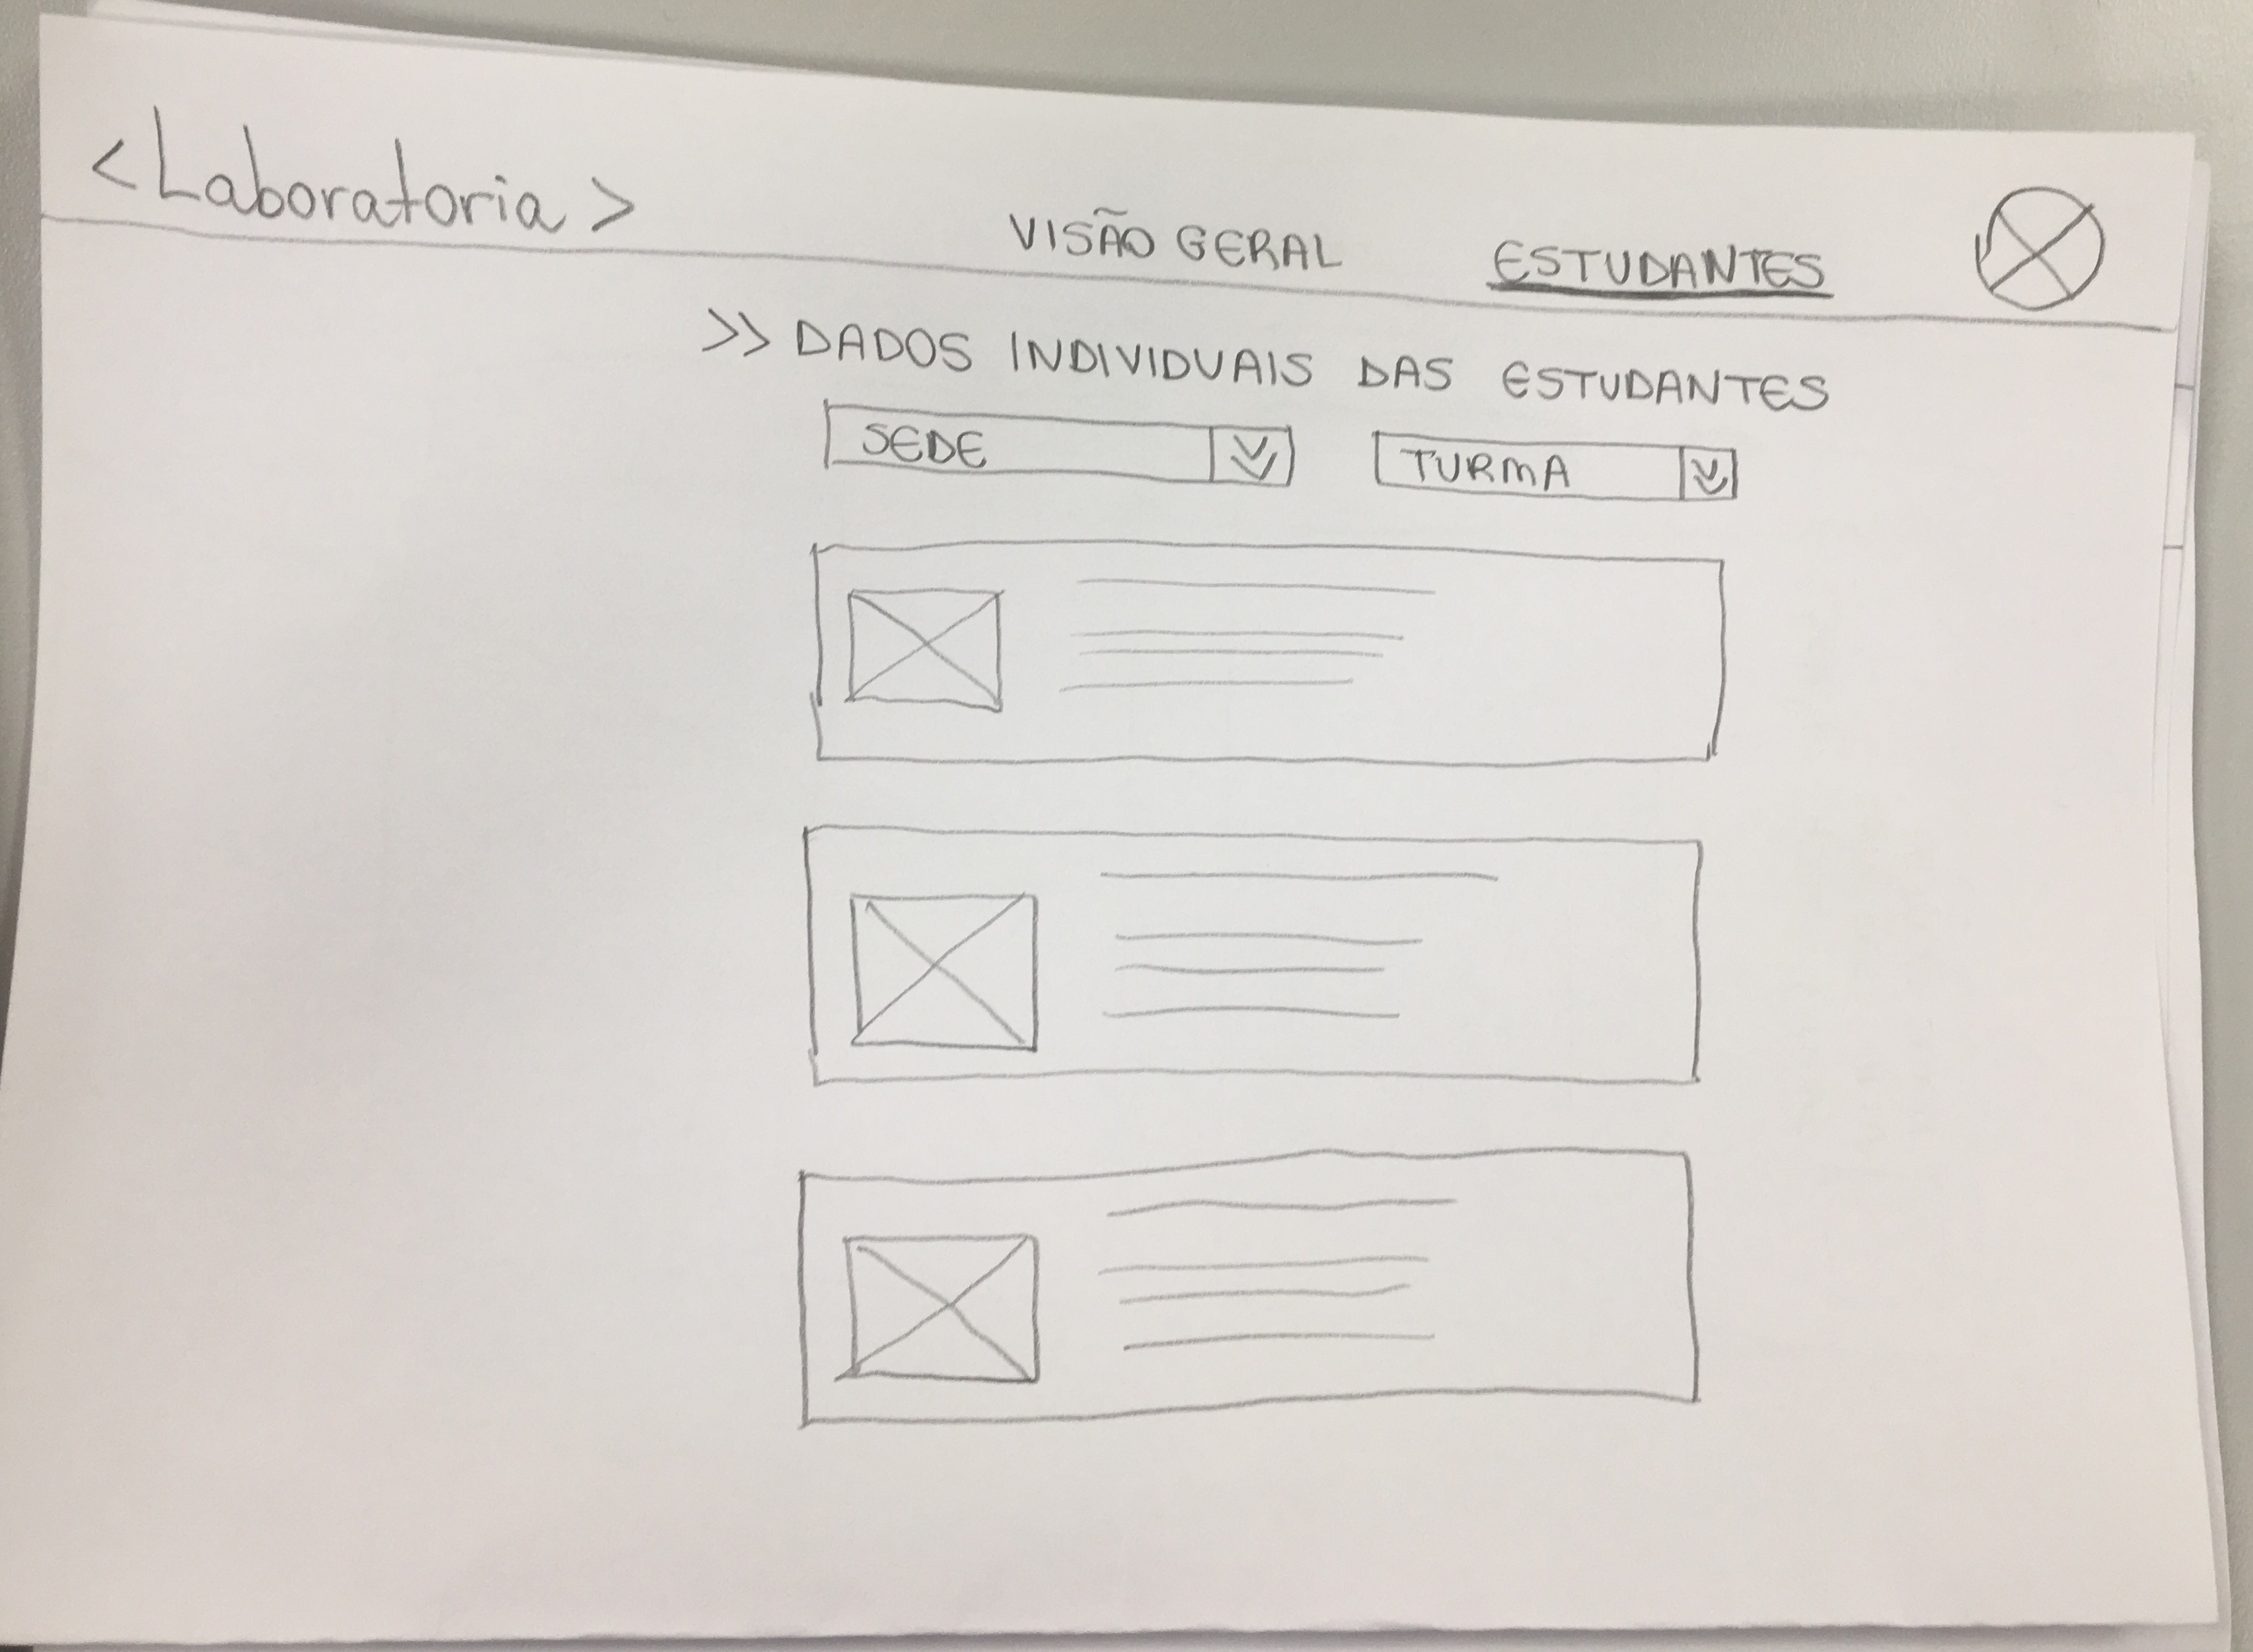 <Laboratoria>
VISÃO GERAL ESTUDANTES
>> DADOS INDIVIDUAIS DAS ESTUDANTES
SEDE TURMA